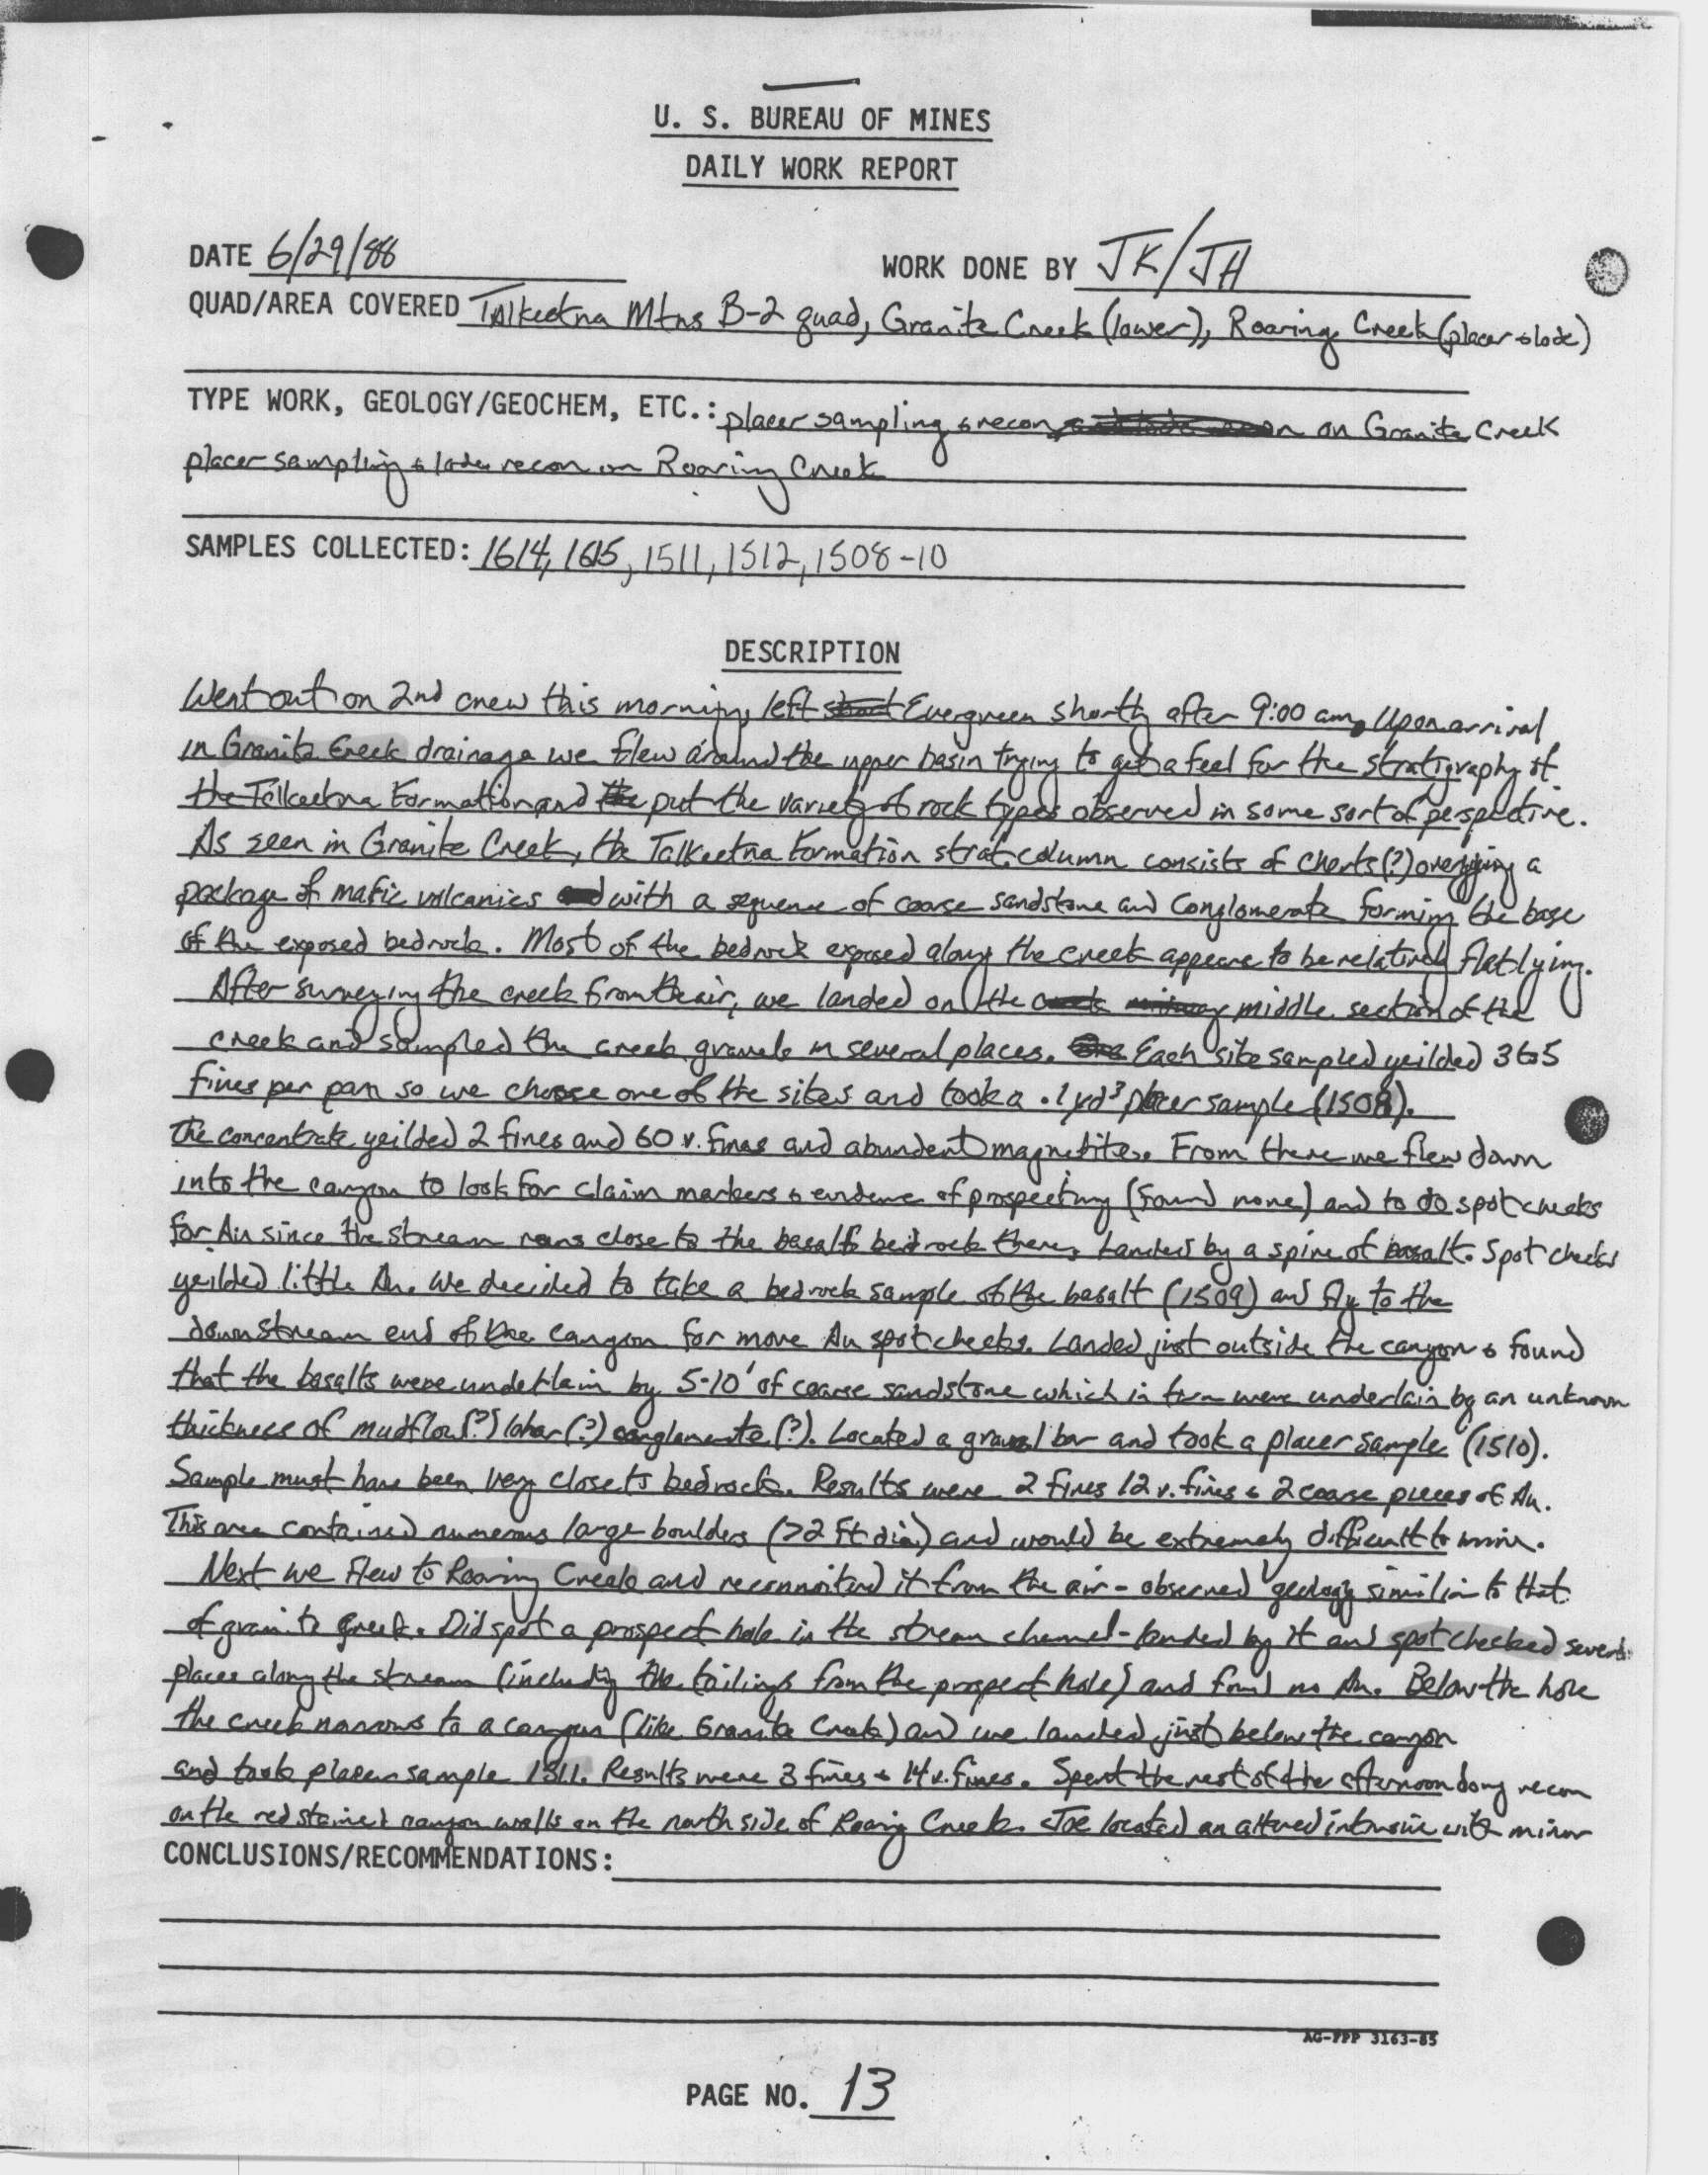 U. S. BUREAU OF MINES
DAILY WORK REPORT
DATE 6/29/88 WORK DONE BY JK/JH
QUAD/AREA COVERED Talkeetna Mtns B-2 quad, Granite Creek (lower), Roaring Creek (placer & lode)
TYPE WORK, GEOLOGY/GEOCHEM, ETC.: placer sampling & recon on Granite Creek
placer sampling & lode recon on Roaring Creek
SAMPLES COLLECTED: 1614, 1615, 1511, 1512, 1508-10
DESCRIPTION
Went out on 2nd crew this morning, left Evergreen shortly after 9:00 am. Upon arrival
in Granite Creek drainage we flew around the upper basin trying to get a feel for the stratigraphy of
the Talkeetna Formation and put the variety of rock types observed in some sort of perspective.
As seen in Granite Creek, the Talkeetna Formation strat. column consists of cherts(?) overlying a
package of mafic volcanics with a sequence of coarse sandstone and conglomerate forming the base
of the exposed bedrock. Most of the bedrock exposed along the creek appears to be relatively flat lying.
After surveying the creek from the air, we landed on the middle section of the
creek and sampled the creek gravels in several places. Each site sampled yeilded 3 to 5
fines per pan so we choose one of the sites and took a .1 yd³ placer sample (1508).
The concentrate yeilded 2 fines and 60 v. fines and abundent magnetite. From there we flew down
into the canyon to look for claim markers & evidence of prospecting (found none) and to do spot checks
for Au since the stream runs close to the basalt bedrock there. Landed by a spine of basalt. Spot checks
yeilded little Au. We decided to take a bedrock sample of the basalt (1509) and fly to the
downstream end of the canyon for more Au spot checks. Landed just outside the canyon & found
that the basalts were underlain by 5-10' of coarse sandstone which in turn were underlain by an unknown
thickness of mudflow(?) lahar(?) conglomerate(?). Located a gravel bar and took a placer sample (1510).
Sample must have been very close to bedrock. Results were 2 fines 12 v. fines & 2 coarse pieces of Au.
This area contained numerous large boulders (>2 ft dia.) and would be extremely difficult to mine.
Next we flew to Roaring Creek and reconnoitered it from the air - observed geology similar to that
of granite creek. Did spot a prospect hole in the stream channel - landed by it and spot checked several
places along the stream (including the tailings from the prospect hole) and found no Au. Below the hole
the creek narrows to a canyon (like Granite Creek) and we landed just below the canyon
and took placer sample 1511. Results were 3 fines & 14 v. fines. Spent the rest of the afternoon doing recon
on the red stained canyon walls on the north side of Roaring Creek. Joe located an altered intrusive with minor
CONCLUSIONS/RECOMMENDATIONS:
AG-FPP 3163-85
PAGE NO. 13